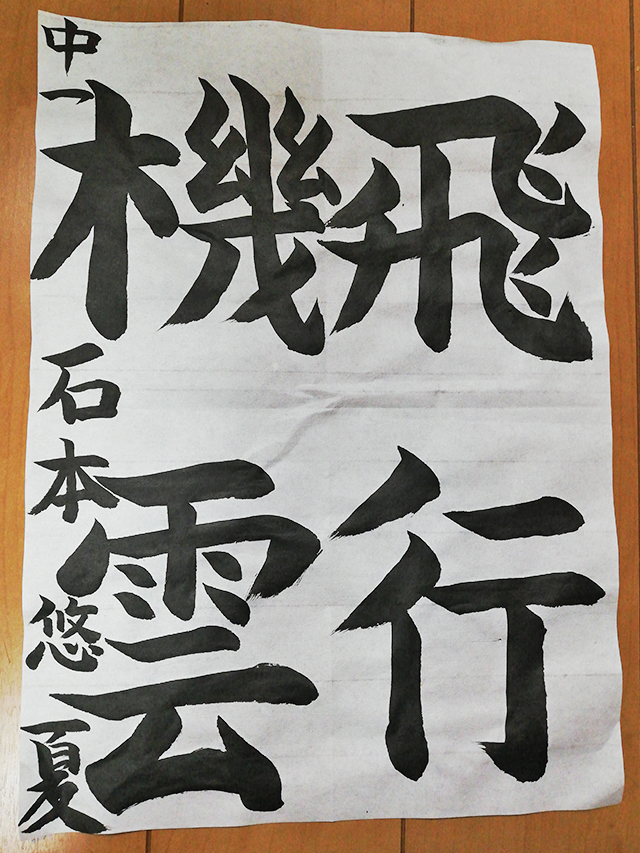 飛行
機雲
中一 石本悠夏